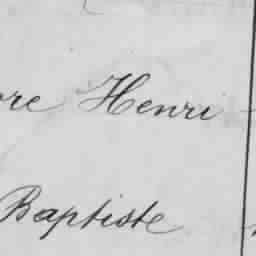 ore Henri
Baptiste